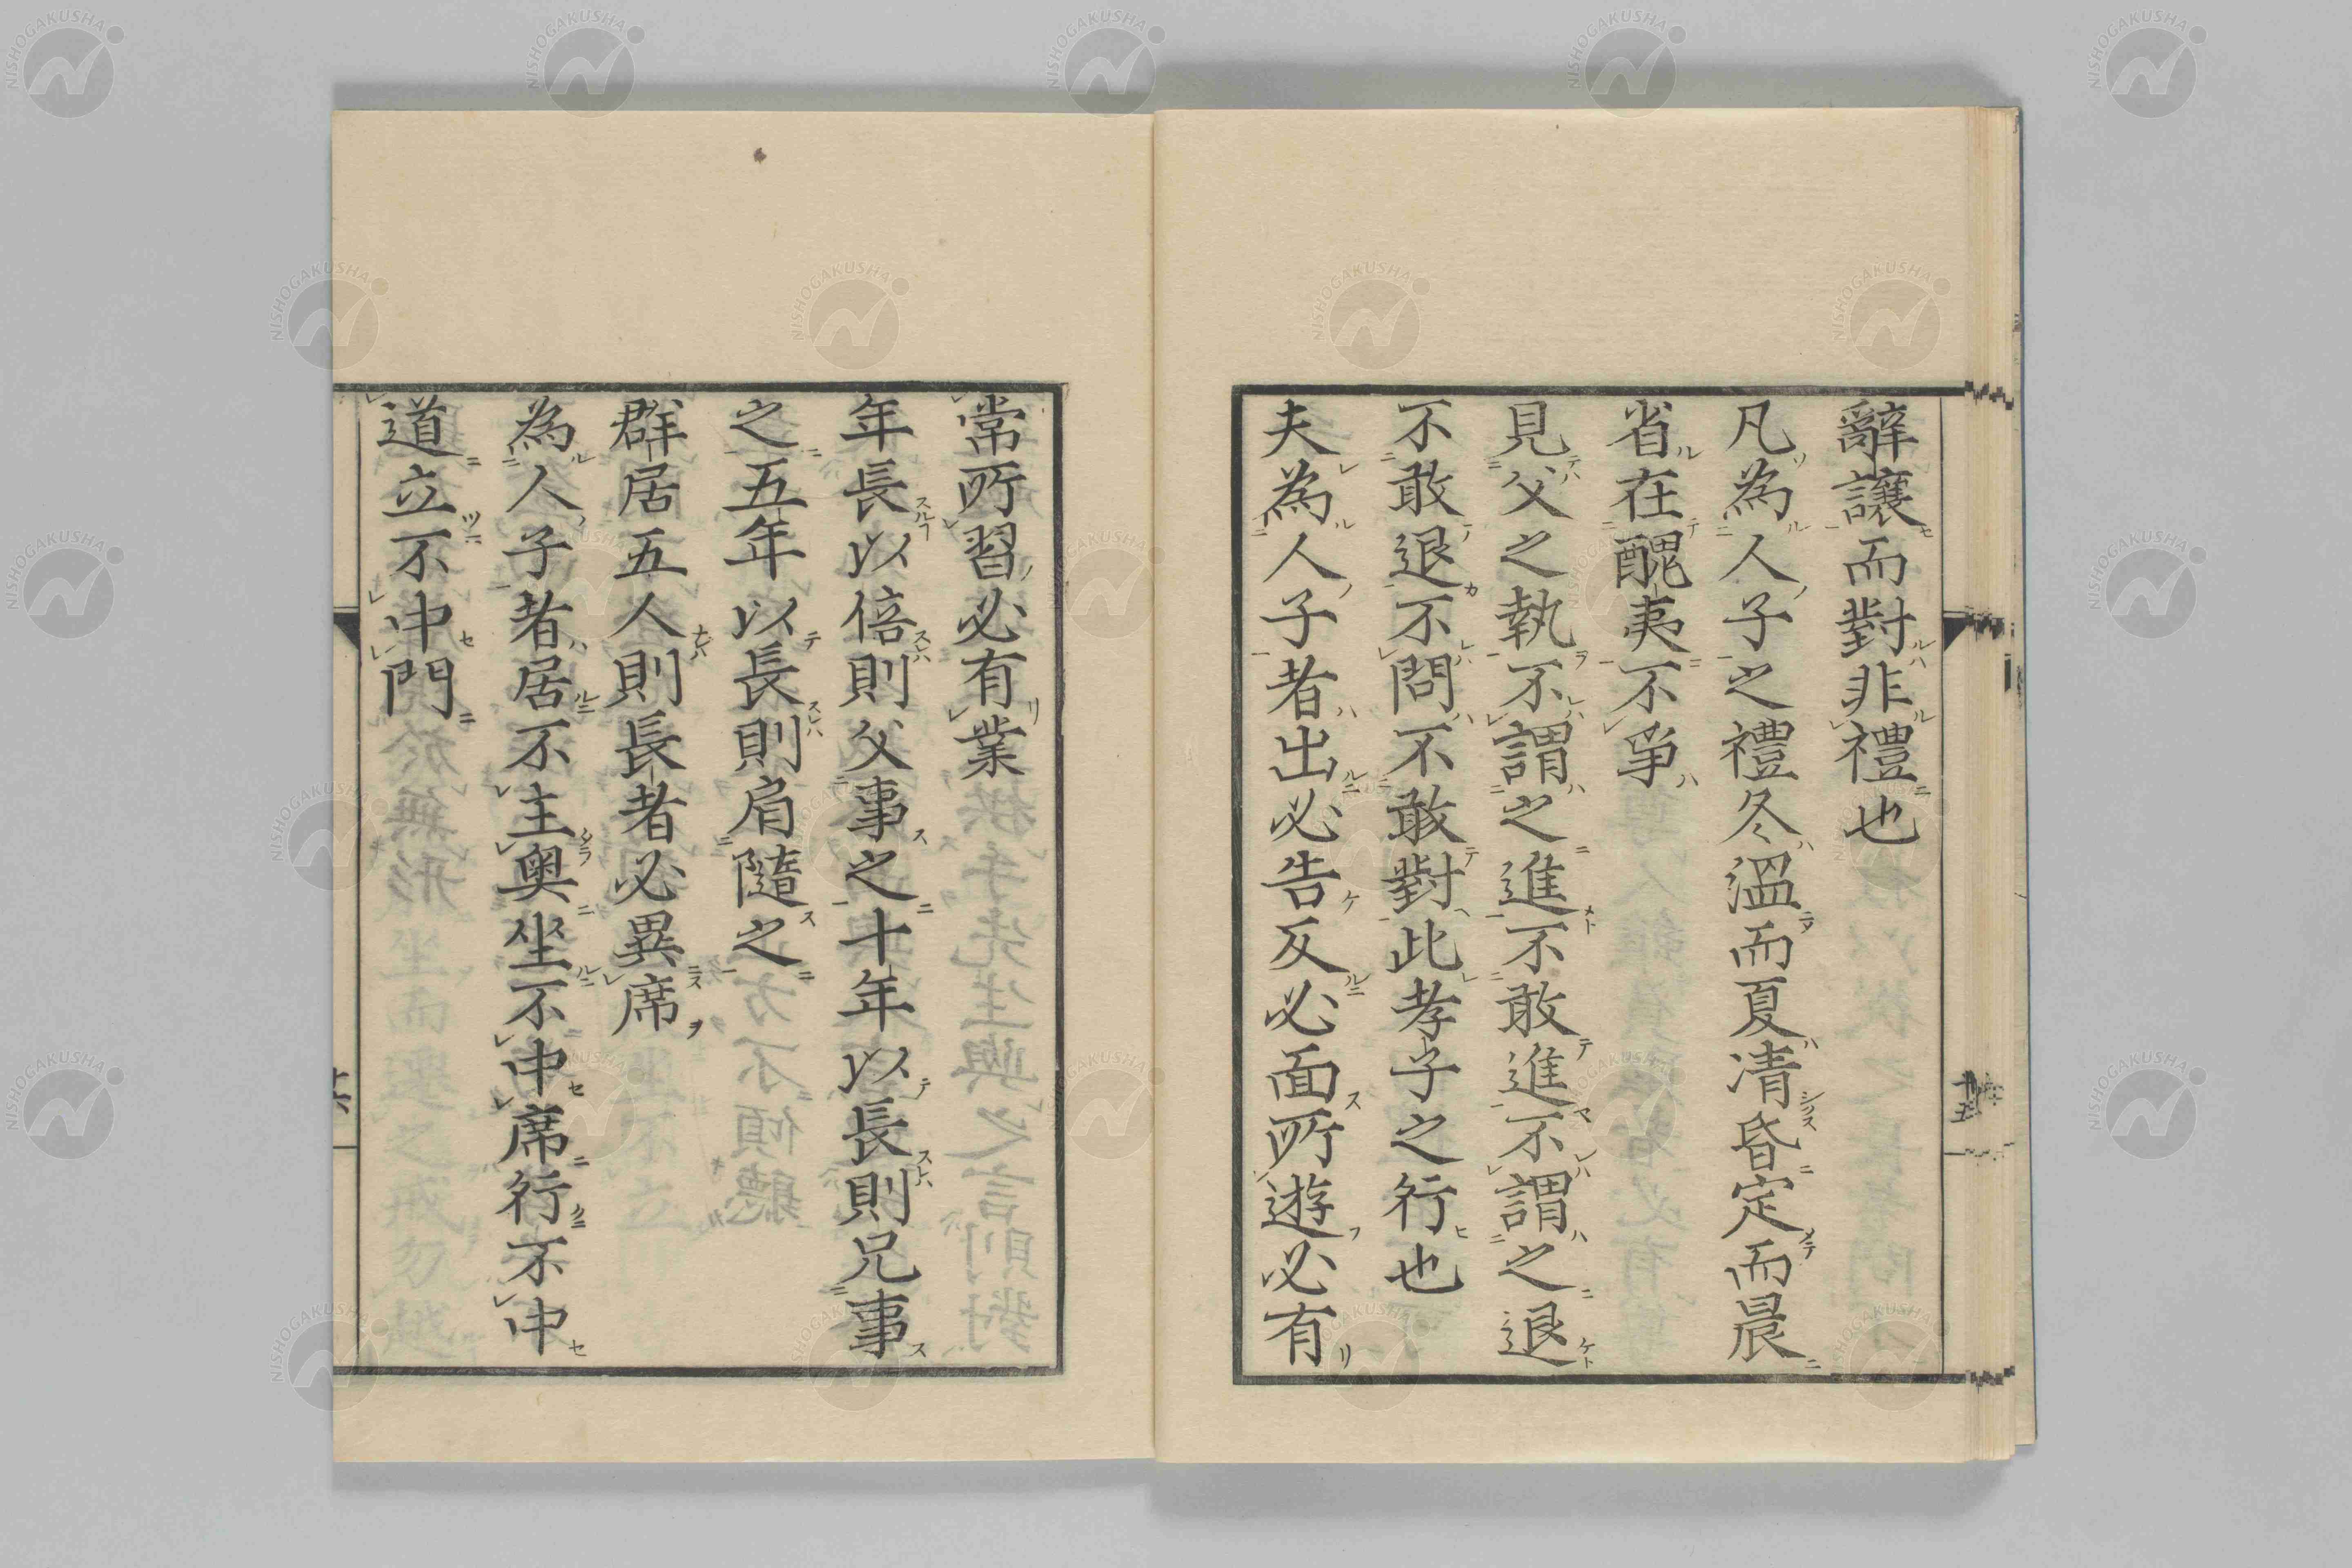 辭讓而對非禮也
凡為人子之禮冬溫而夏凊昏定而晨
省在醜夷不爭
見父之執不謂之進不敢進不謂之退
不敢退不問不敢對此孝子之行也
夫為人子者出必告反必面所遊必有
常所習必有業
年長以倍則父事之十年以長則兄事
之五年以長則肩隨之
群居五人則長者必異席
為人子者居不主奧坐不中席行不中
道立不中門
NISHOGAKUSHA